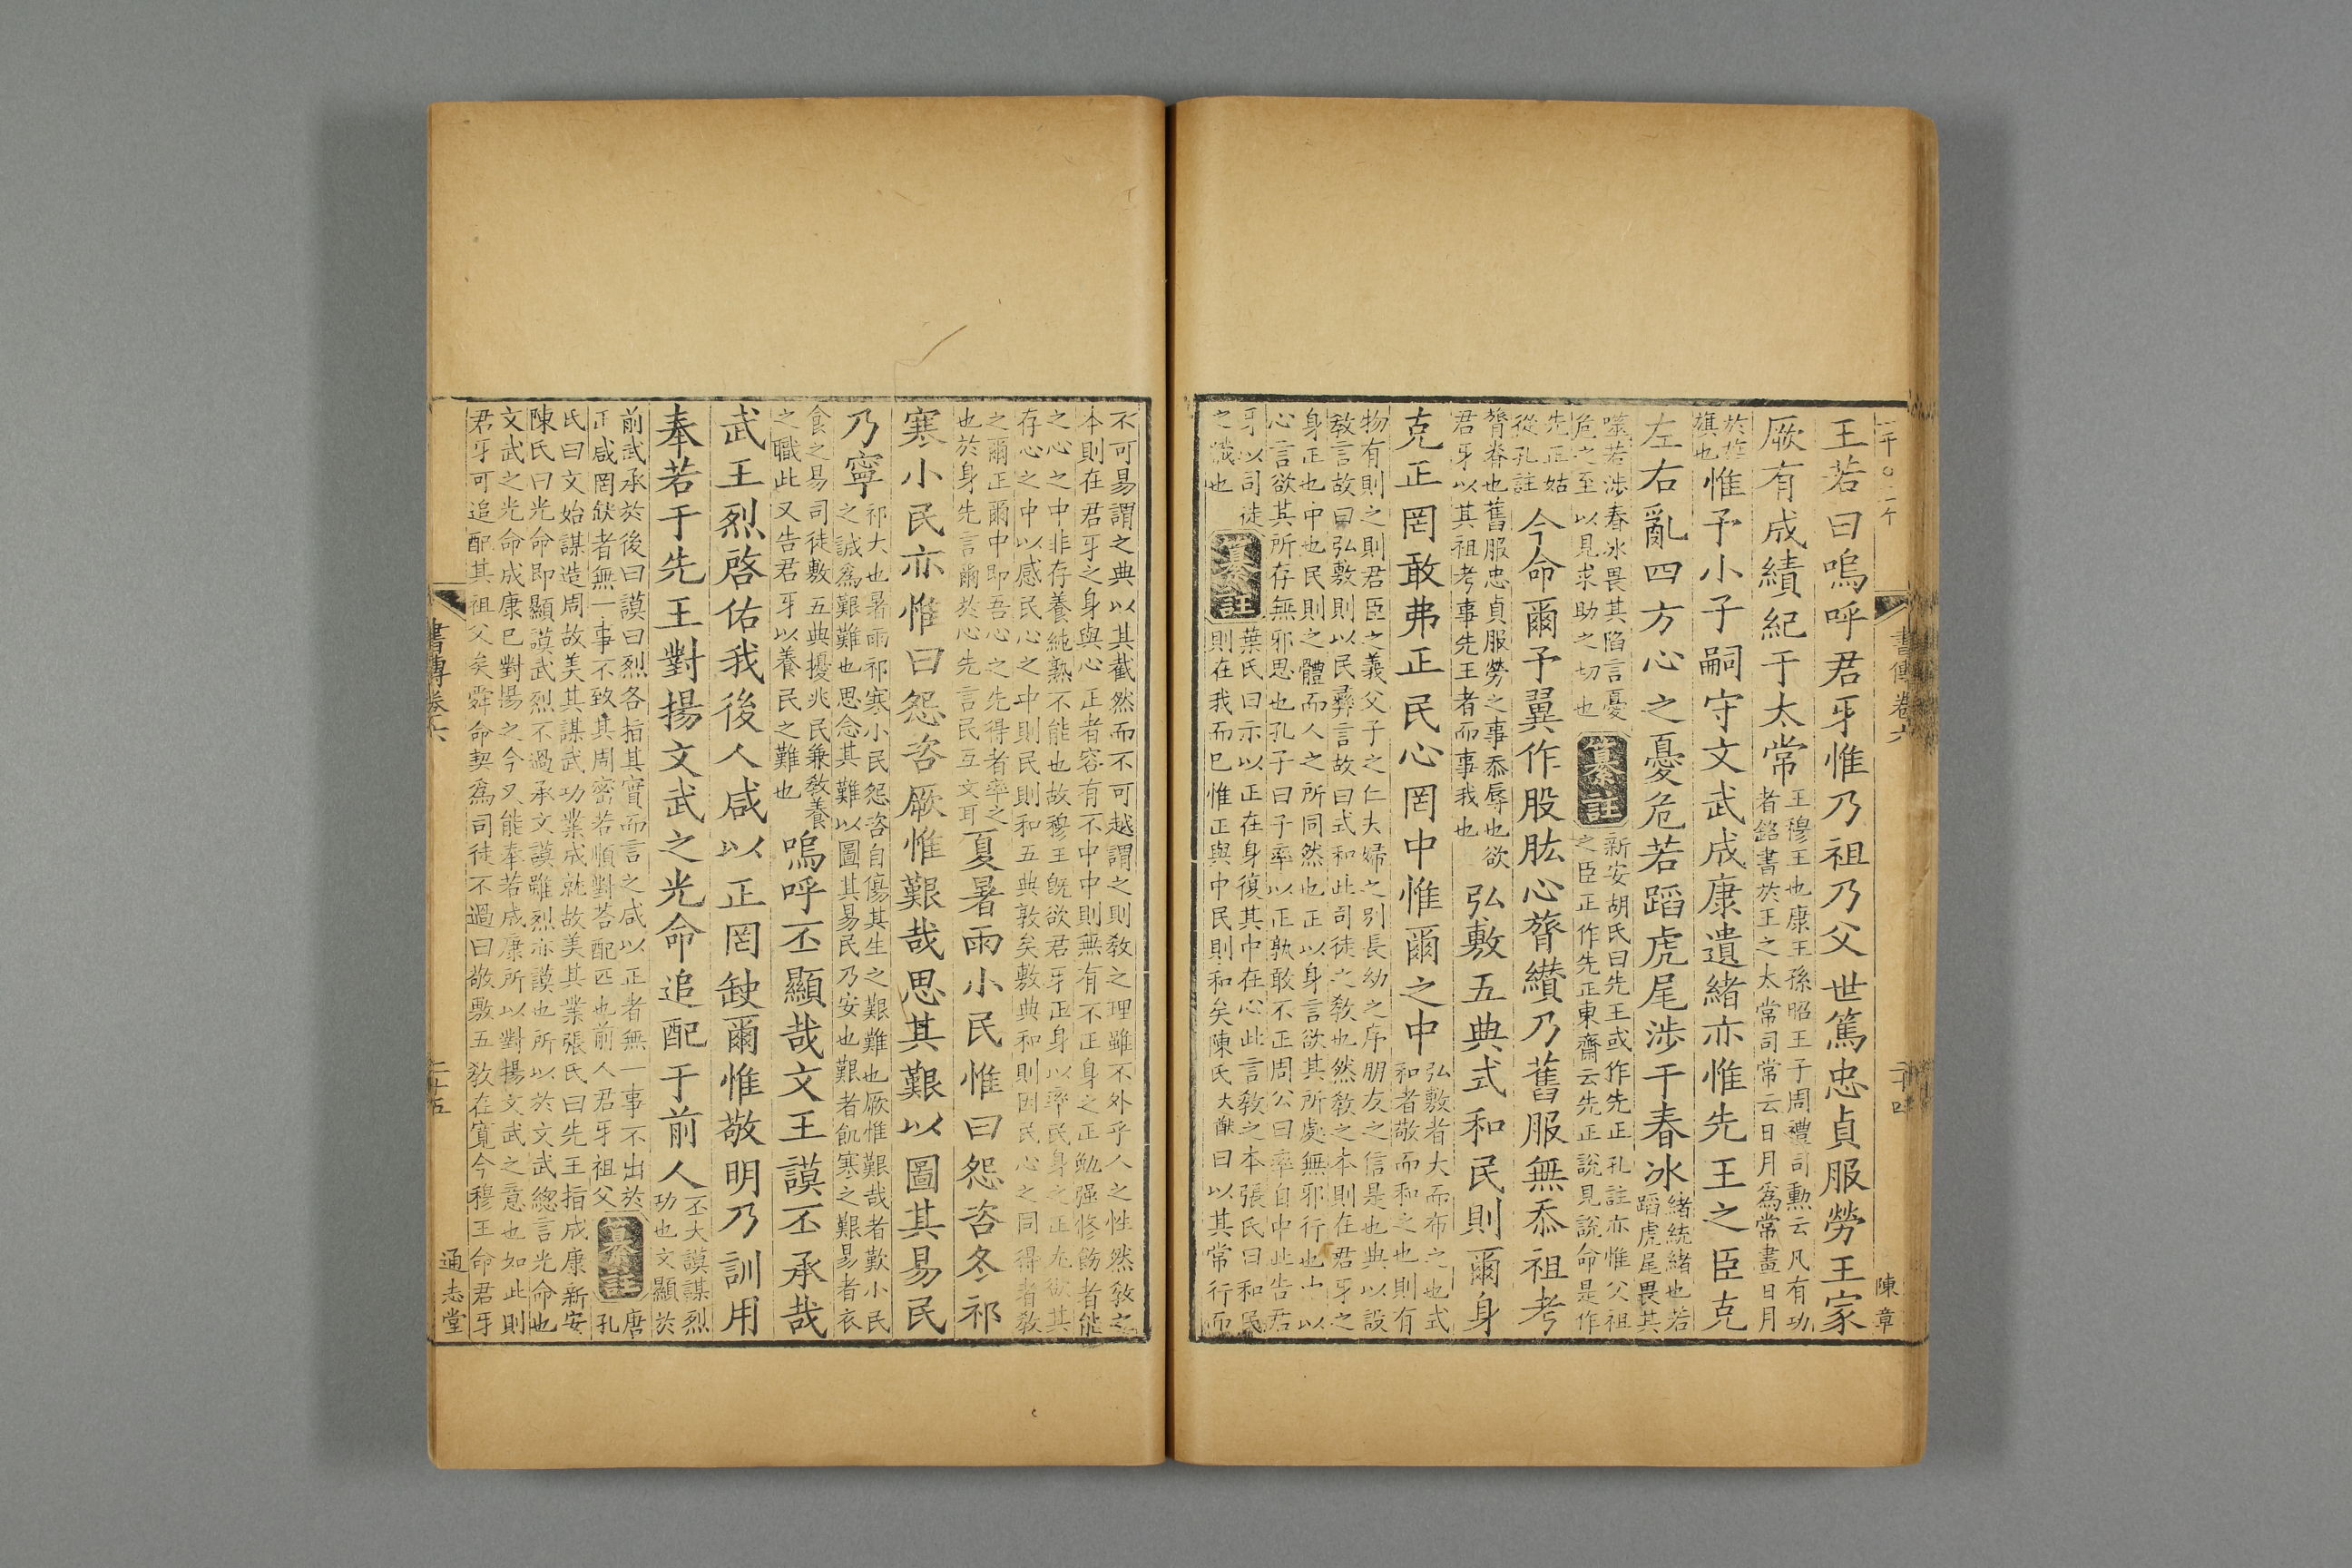 書傳卷六
二十四
陳章
王若曰嗚呼君牙惟乃祖乃父世篤忠貞服勞王家
厥有成績紀于太常
王穆王也康王孫昭王子周禮司勳云凡有功
者銘書於王之太常司常云日月爲常畫日月
於旌
旗也
惟予小子嗣守文武成康遺緒亦惟先王之臣克
左右亂四方心之憂危若蹈虎尾涉于春冰
緒統緒也若
蹈虎尾畏其
噬若涉春冰畏其陷言憂
危之至以見求助之切也
纂註
新安胡氏曰先王或作先正孔註亦惟父祖
之臣正作先正東齋云先正說見說命是作
先正姑
從孔註
今命爾予翼作股肱心膂纘乃舊服無忝祖考
膂脊也舊服忠貞服勞之事忝辱也欲
君牙以其祖考事先王者而事我也
弘敷五典式和民則爾身
克正罔敢弗正民心罔中惟爾之中
弘敷者大而布之也式
和者敬而和之也則有
物有則之則君臣之義父子之仁夫婦之別長幼之序朋友之信是也典以設
教言故曰弘敷則以民彝言故曰式和此司徒之教也然教之本則在君牙之
身正也中也民則之體而人之所同然也正以身言欲其所處無邪行也中以
心言欲其所存無邪思也孔子曰子率以正孰敢不正周公曰率自中此告君
牙以司徒
之職也
纂註
葉氏曰示以正在身復其中在心此言教之本張氏曰和民
則在我而已惟正與中民則和矣陳氏大猷曰以其常行而
不可易謂之典以其截然而不可越謂之則教之理雖不外乎人之性然教之
本則在君牙之身與心正者容有不中中則無有不正身之正勉强修飭者能
之心之中非存養純熟不能也故穆王旣欲君牙正身以率民身之正尤欲其
存心之中以感民心之中則民則和五典敦矣敷典和則因民心之同得者教
之爾正爾中即吾心之先得者率之
也於身先言爾於心先言民互文耳
夏暑雨小民惟曰怨咨冬祁
寒小民亦惟曰怨咨厥惟艱哉思其艱以圖其易民
乃寧
祁大也暑雨祁寒小民怨咨自傷其生之艱難也厥惟艱哉者歎小民
之誠爲艱難也思念其難以圖其易民乃安也艱者飢寒之艱易者衣
食之易司徒敷五典擾兆民兼教養
之職此又告君牙以養民之難也
嗚呼丕顯哉文王謨丕承哉
武王烈啓佑我後人咸以正罔缺爾惟敬明乃訓用
奉若于先王對揚文武之光命追配于前人
丕大謨謀烈
功也文顯於
前武承於後曰謨曰烈各指其實而言之咸以正者無一事不出於
正咸罔缺者無一事不致其周密若順對荅配匹也前人君牙祖父
纂註
唐
孔
氏曰文始謀造周故美其謀武功業成就故美其業張氏曰先王指成康新安
陳氏曰光命即顯謨武烈不過承文謨雖烈亦謨也所以於文武總言光命也
文武之光命成康已對揚之今又能奉若成康所以對揚文武之意也如此則
君牙可追配其祖父矣舜命契爲司徒不過曰敬敷五教在寬今穆王命君牙
書傳卷六
二十五
通志堂